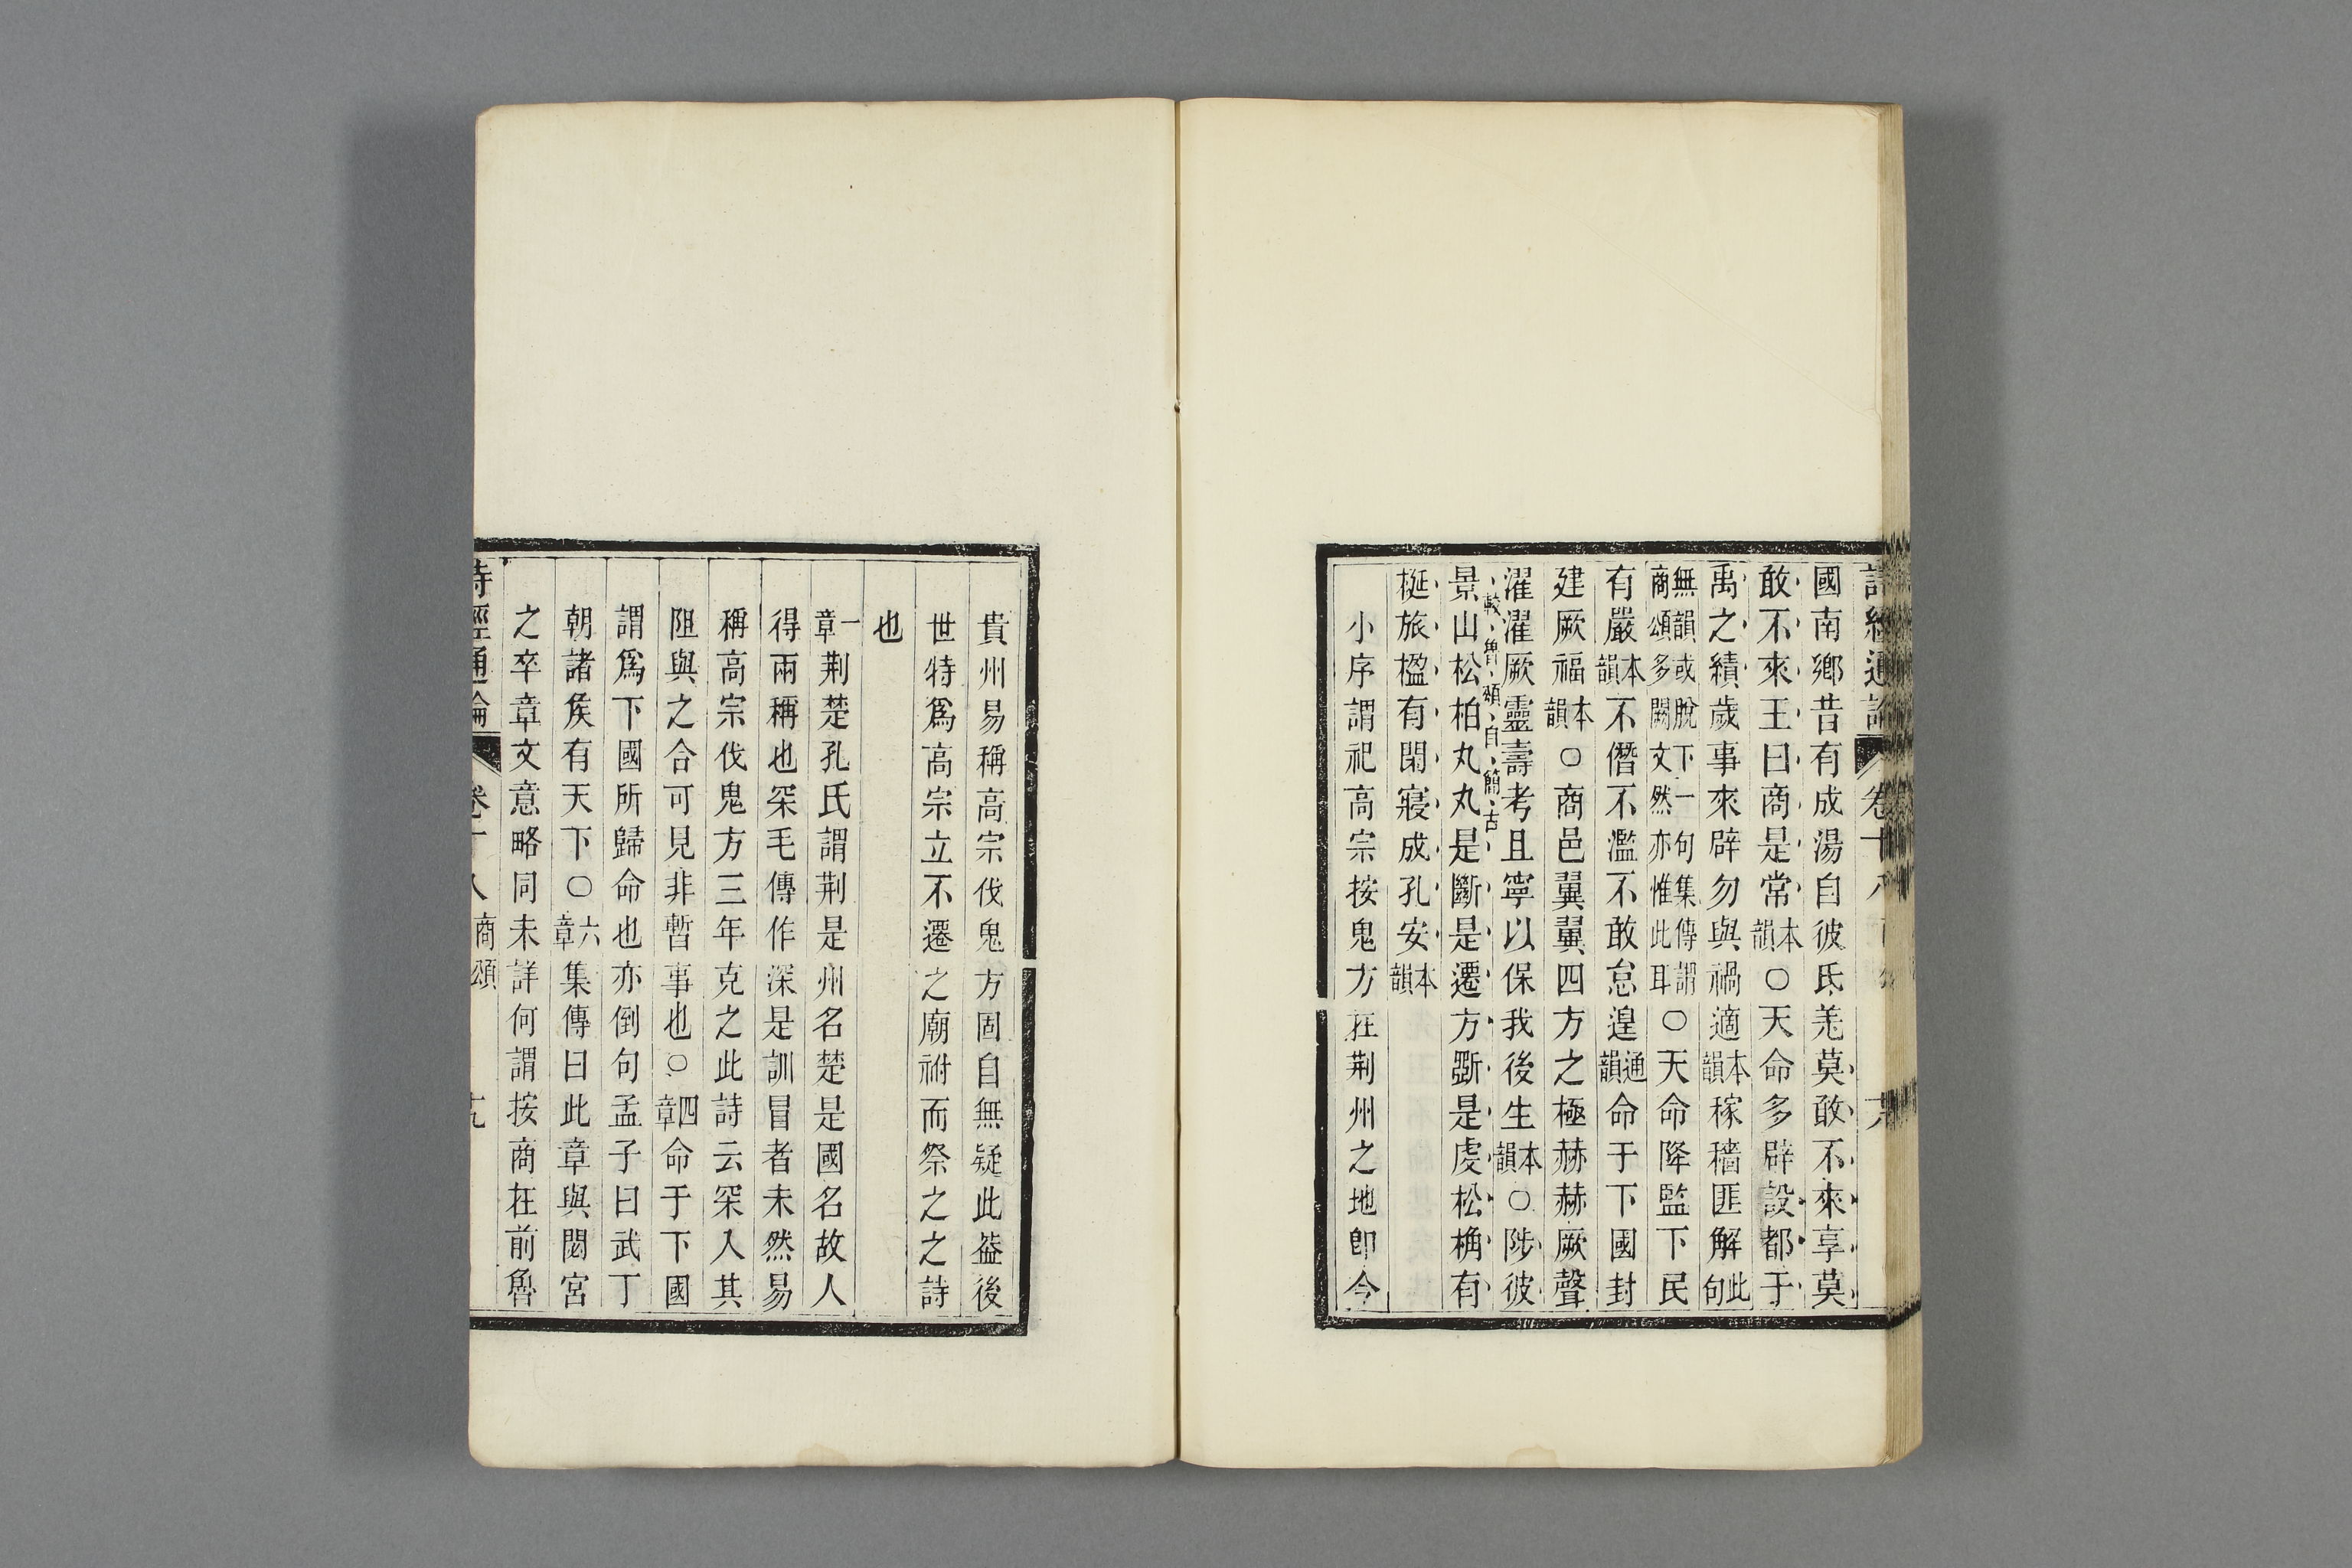 詩經通論 卷十八 商頌 十八
國南鄉昔有成湯自彼氐羌莫敢不來享莫
敢不來王曰商是常本韻○天命多辟設都于
禹之績歲事來辟勿與禍適本韻稼穡匪解此句
無韻或脫下一句集傳謂商頌多闕文然亦惟此耳○天命降監下民
有嚴本韻不僭不濫不敢怠遑通韻命于下國封
建厥福本韻○商邑翼翼四方之極赫赫厥聲
濯濯厥靈壽考且寧以保我後生本韻○陟彼
較魯頌自簡古
景山松柏丸丸是斷是遷方斲是虔松桷有
梴旅楹有閑寢成孔安本韻
小序謂祀高宗按鬼方在荆州之地卽今
貴州易稱高宗伐鬼方固自無疑此葢後
世特爲高宗立不遷之廟祔而祭之之詩
也
一章荆楚孔氏謂荆是州名楚是國名故人
得兩稱也罙毛傳作深是訓冒者未然易
稱高宗伐鬼方三年克之此詩云罙入其
阻與之合可見非暫事也○四章命于下國
謂爲下國所歸命也亦倒句孟子曰武丁
朝諸侯有天下○六章集傳曰此章與閟宮
之卒章文意略同未詳何謂按商在前魯
詩經通論 卷十八 商頌 十九